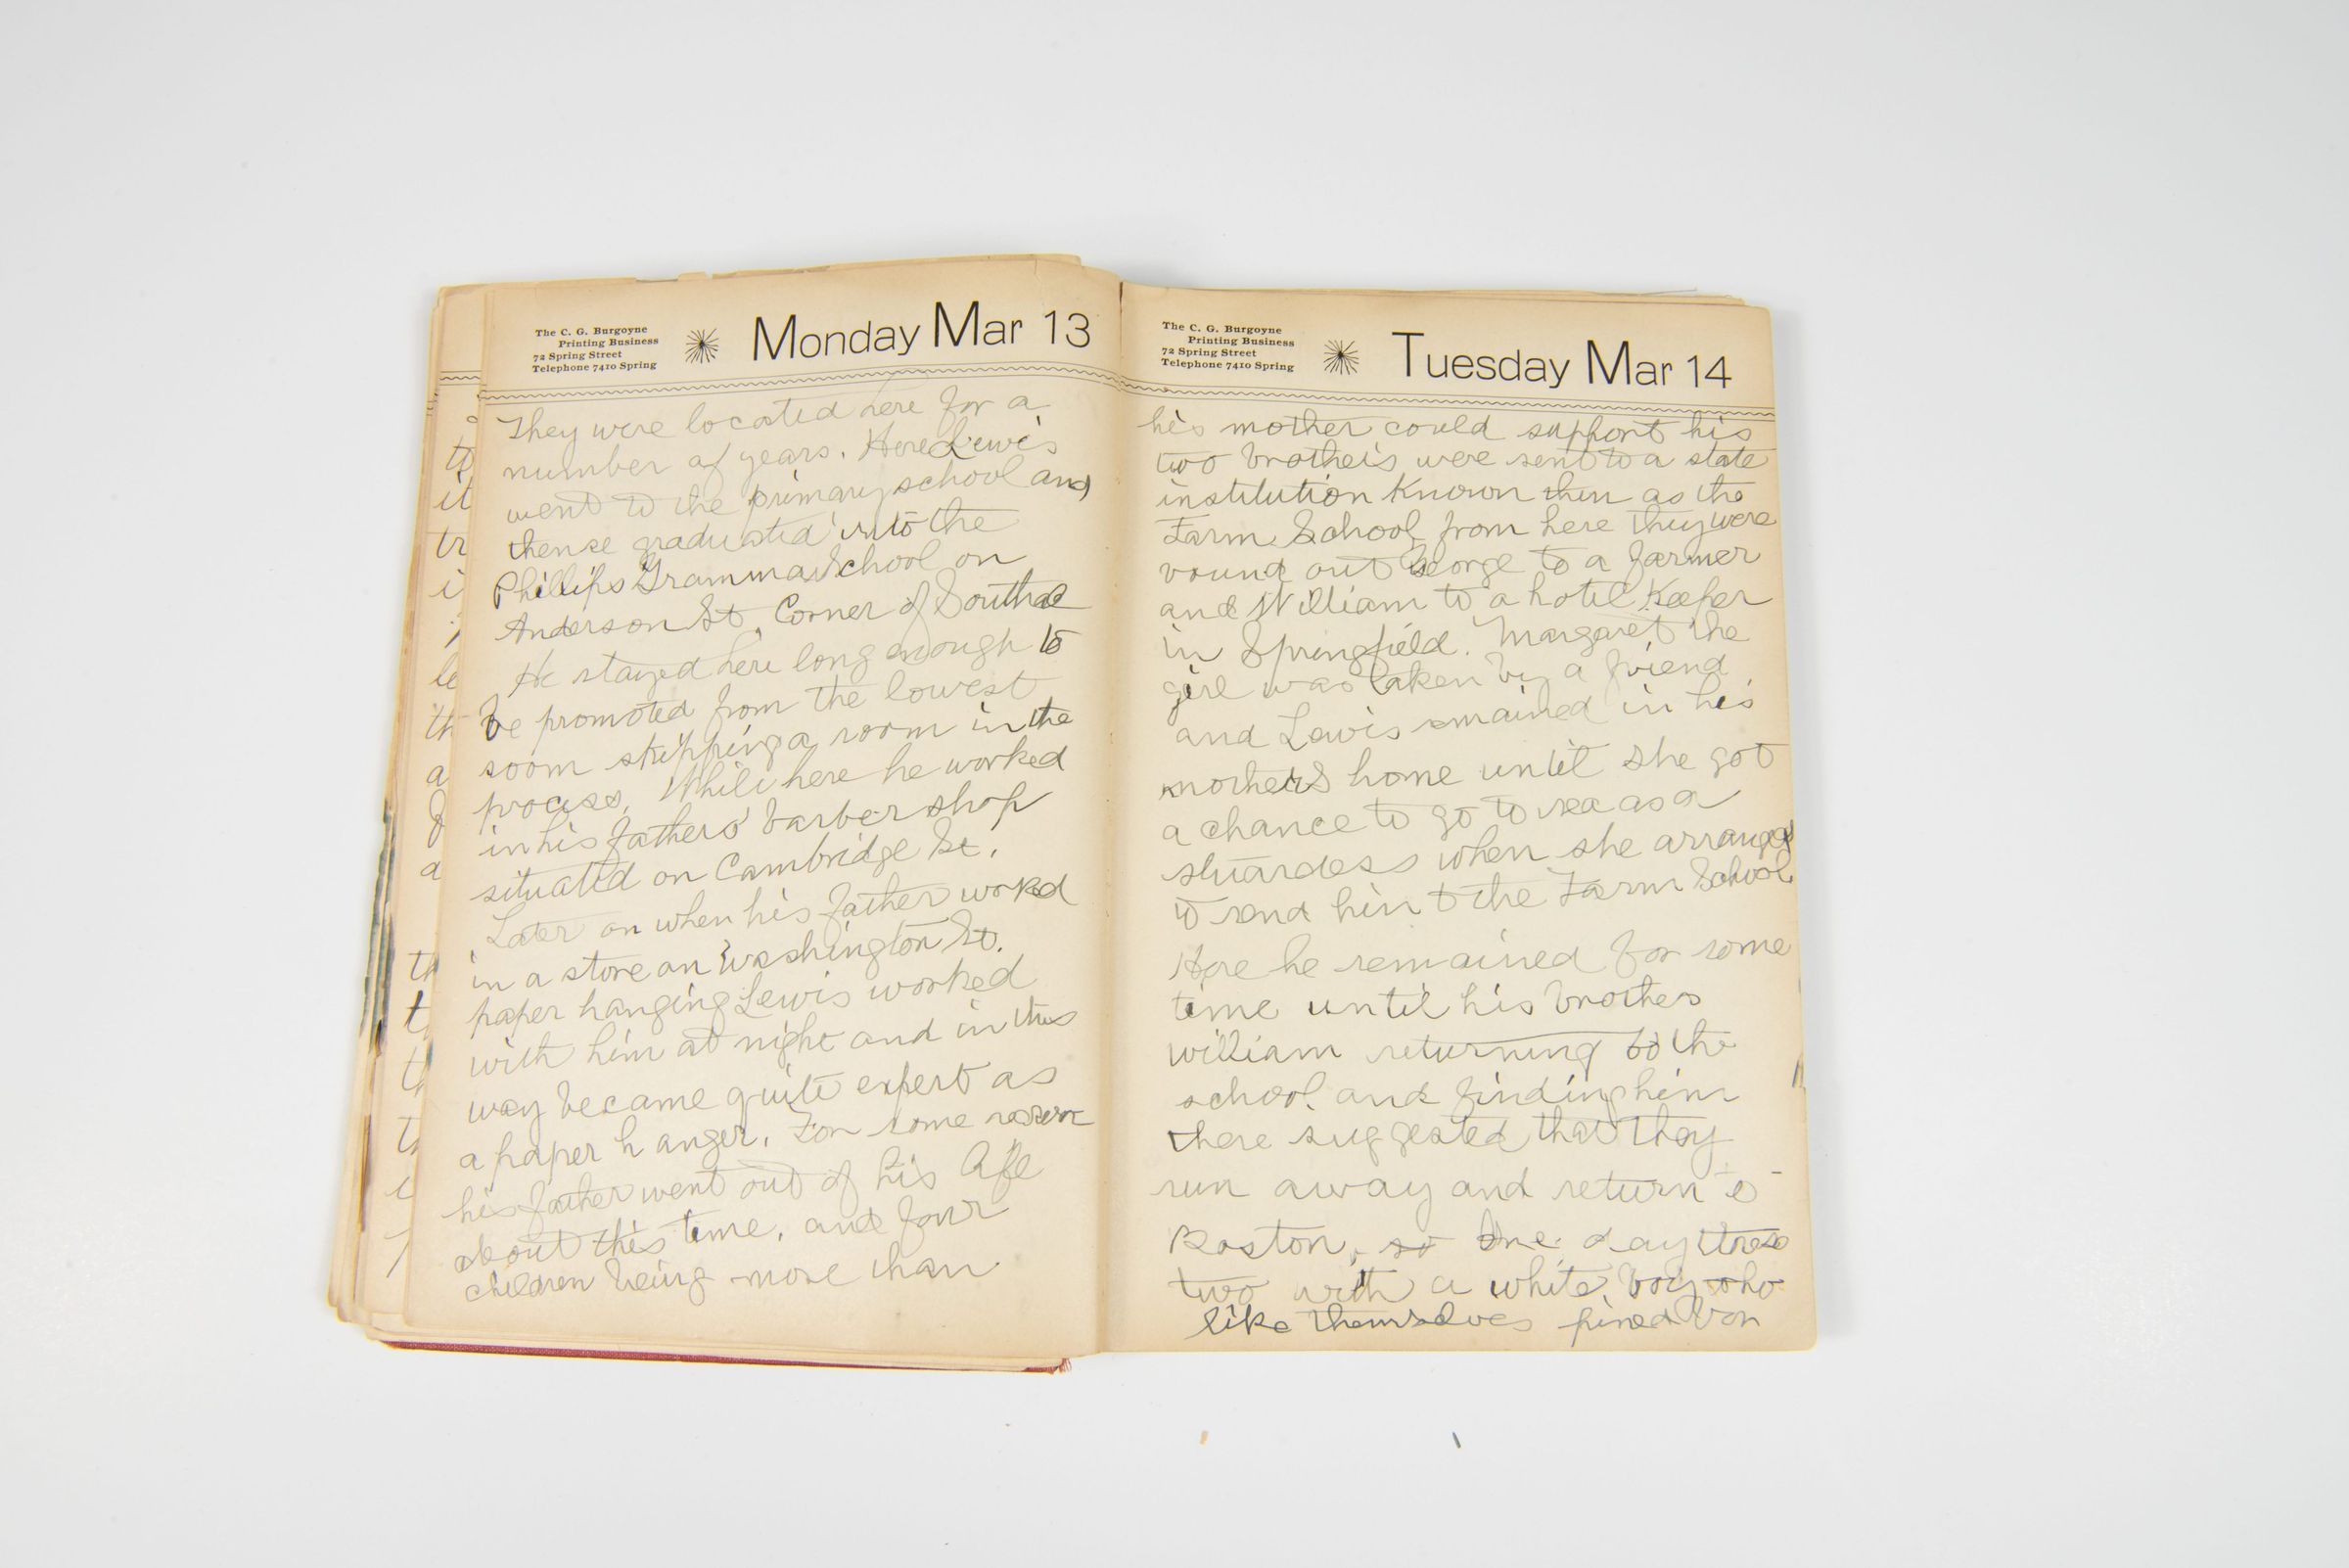 The C. G. Burgoyne
Printing Business
72 Spring Street
Telephone 7410 Spring
Monday Mar 13
They were located here for a
number of years. Here Lewis
went to the primary school and
thense graduated into the
Phillips Grammar School on
Anderson St, Corner of Southac
He stayed here long enough to
be promoted from the lowest
room skipping a room in the
process. While here he worked
in his fathers' barber shop
situated on Cambridge St.
Later on when his father worked
in a store on Washington St.
paper hanging Lewis worked
with him at night and in this
way became quite expert as
a paper hanger. For some reason
his father went out of his life
about this time, and four
children being more than
The C. G. Burgoyne
Printing Business
72 Spring Street
Telephone 7410 Spring
Tuesday Mar 14
his mother could support his
two brothers were sent to a state
institution Known then as the
Farm School from here they were
bound out George to a farmer
and William to a hotel Keeper
in Springfield. Margaret the
girl was taken by a friend
and Lewis remained in his
mothers home until she got
a chance to go to sea as a
stuardess when she arranged
to send him to the Farm School.
Here he remained for some
time until his brother
William returning to the
school and finding him
there suggested that they
run away and return to
Boston, so one day these
two with a white boy who
like themselves pined